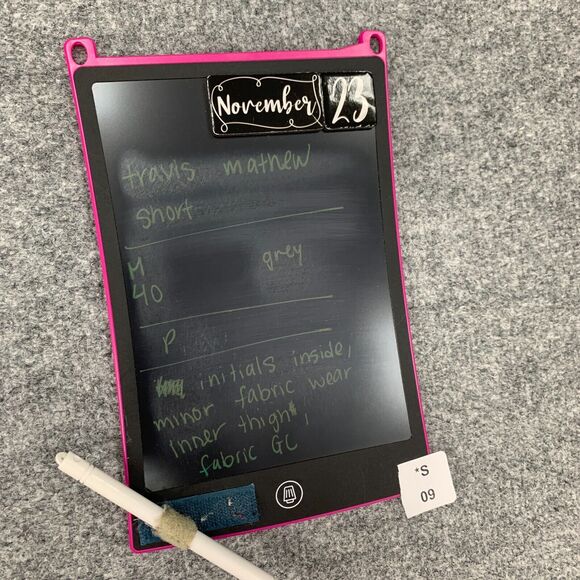 November 23
travis mathew
short
M grey
40
P
initials inside,
minor fabric wear
inner thigh,
fabric GC
*S
09